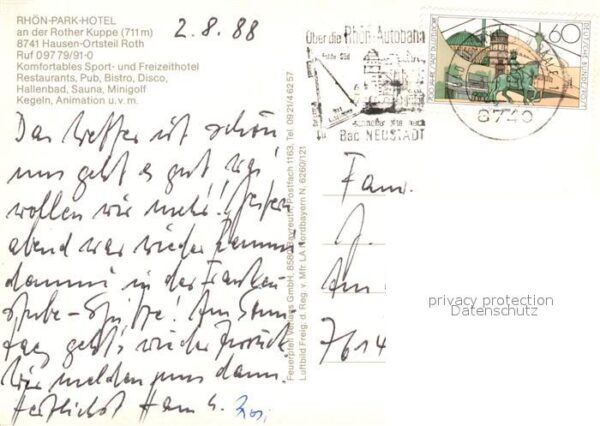 RHÖN-PARK-HOTEL
an der Rother Kuppe (711m)
8741 Hausen-Ortsteil Roth
Ruf 09779/91-0
Komfortables Sport- und Freizeithotel
Restaurants, Pub, Bistro, Disco,
Hallenbad, Sauna, Minigolf
Kegeln, Animation u.v.m.
2.8.88
Das Wetter ist schön,
uns geht es gut, was
wollen wir mehr! Gestern
abend war wieder
in der Franken
stube - Spitze! Am Sonn
tag geht's wieder zurück.
Wir melden uns dann.
Herzlichst Hans u. Rosi
Feuerpfeil Verlags GmbH, 8580 Bayreuth, Postfach 1163, Tel. 0921/46257
Luftbild Freig. d. Reg. v. Mfr. LA Nordbayern N. 6260/121
Über die Rhön-Autobahn
Bad NEUSTADT
8740
60
DEUTSCHE BUNDESPOST
700 JAHRE STADT DÜSSELDORF
Fam.
J.
Am
7614
privacy protection
Datenschutz